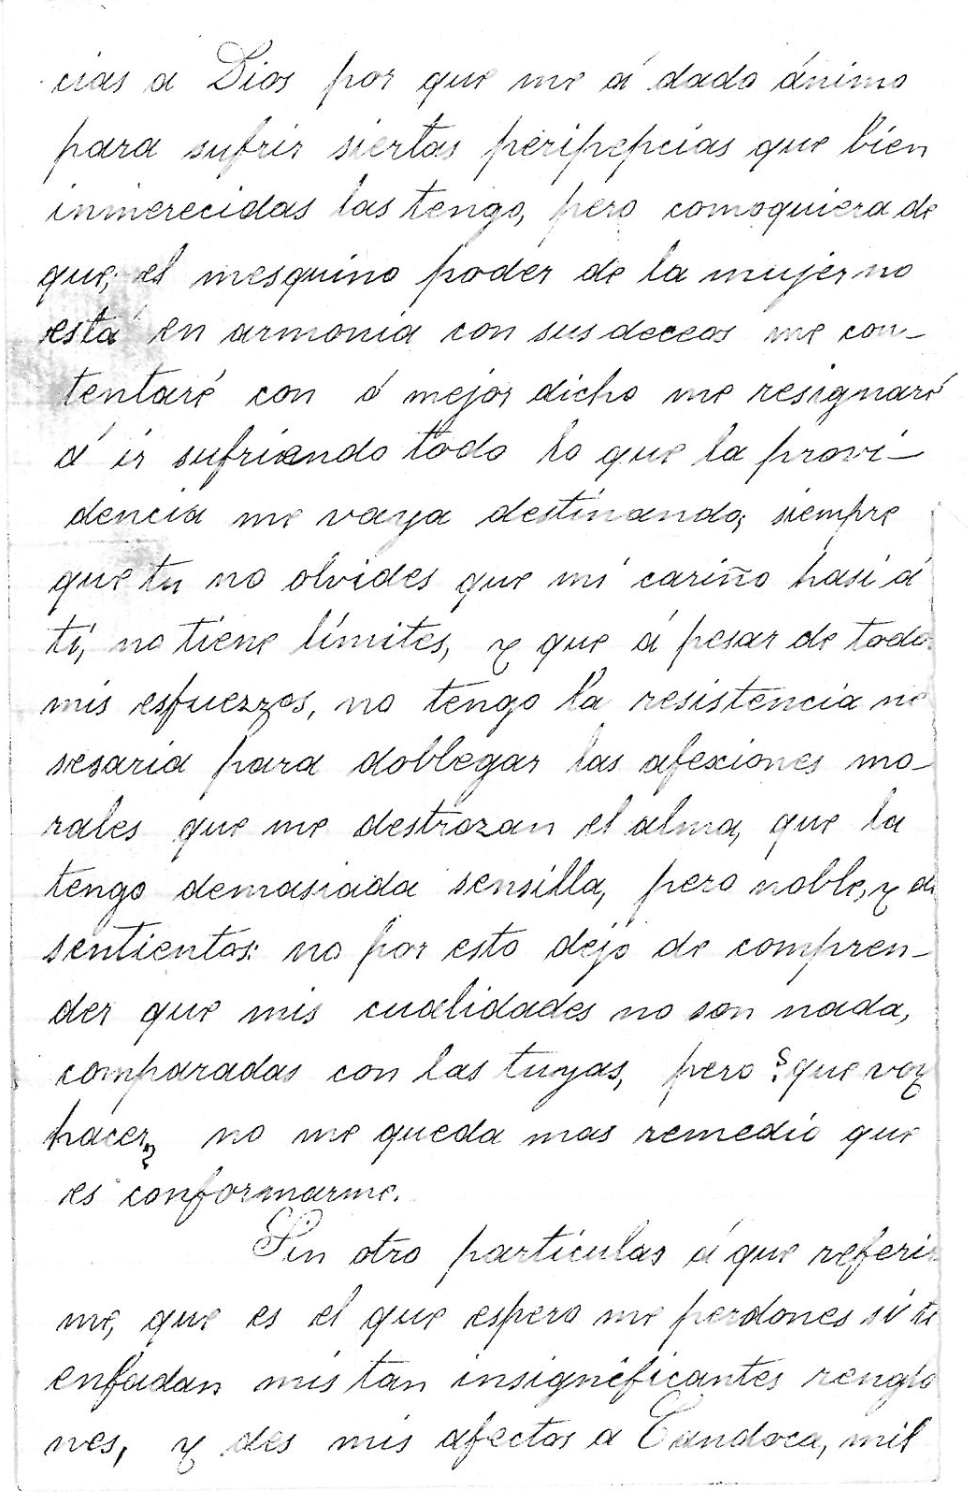 cias a Dios por que me á dado ánimo
para sufrir siertas peripepcias que bien
inmerecidas las tengo, pero comoquiera de
que; el mesquino poder de la mujer no
está en armonia con sus deceos me con-
tentaré con ó mejor dicho me resignaré
á ir sufriendo todo lo que la provi-
dencia me vaya destinando; siempre
que tu no olvides que mi cariño hasi á
ti, no tiene límites, y que á pesar de todo
mis esfuezzos, no tengo la resistencia ne
sesaria para doblegar las afexiones mo-
rales que me destrozan el alma, que la
tengo demasiada sensilla, pero noble, y de
sentientos: no por esto dejo de compren-
der que mis cualidades no son nada,
comparadas con las tuyas, pero ¿que voy
hacer? no me queda mas remedio que
es conformarme.
Sin otro particulas á que referir
me, que es el que espero me perdones si te
enfadan mis tan insignificantes renglo
nes, y des mis afectos a Candoca, mil